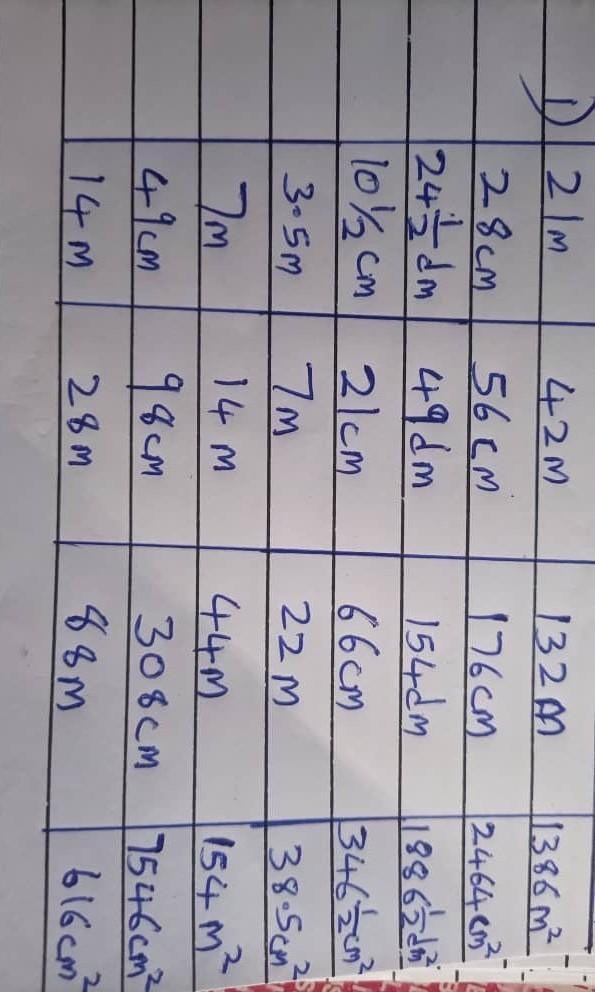 1) 21m 42m 132m 1386m²
28cm 56cm 176cm 2464cm²
24½dm 49dm 154dm 1886½dm²
10½cm 21cm 66cm 346½cm²
3.5m 7m 22m 38.5cm²
7m 14m 44m 154m²
49cm 98cm 308cm 7546cm²
14m 28m 88m 616cm²